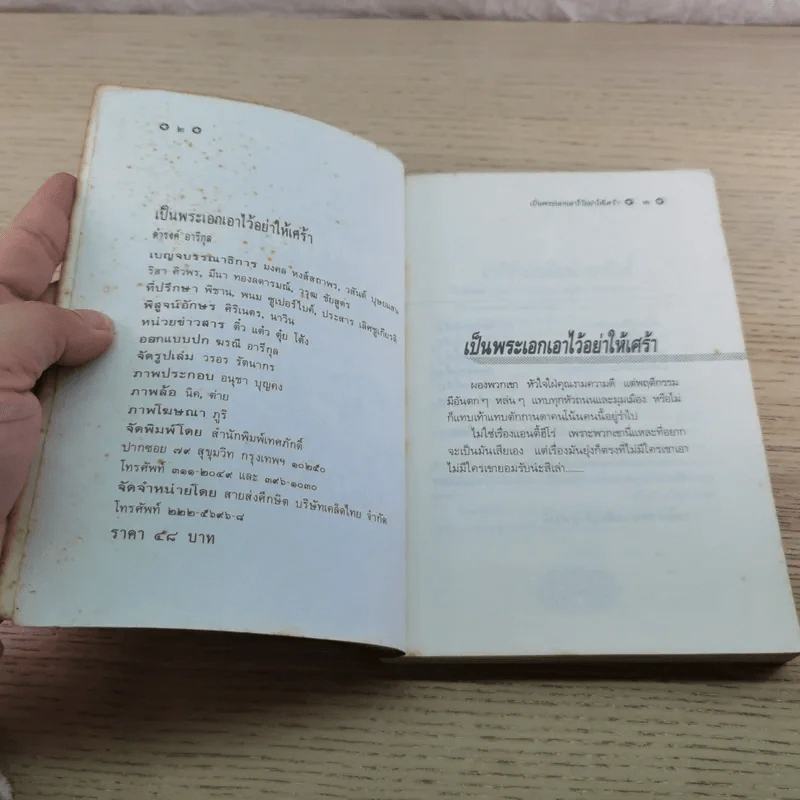 ๒
เป็นพระเอกเอาไว้อย่าให้เศร้า
ดำรงค์ อารีกุล
เบญจบรรณาธิการ มงคล หงส์สถาพร, วสันต์ บุษยแสน
ริสา ศิวพร, มีนา ทองลดารมณ์, วุฒ ชัยสูตร
ที่ปรึกษา พิชาน, พนม ซูเปอร์ไบต์, ประสาร เลิศชูเกียรติ
พิสูจน์อักษร ศิริเนตร, นาวิน
หน่วยข่าวสาร ติ๋ว แต๋ว ตุ๋ย โต้ง
ออกแบบปก ฆรณี อารีกุล
จัดรูปเล่ม วรอร รัตนากร
ภาพประกอบ อนุชา บุญคง
ภาพล้อ นิค, ต่าย
ภาพโฆษณา ภูริ
จัดพิมพ์โดย สำนักพิมพ์เทศภักดิ์
ปากซอย ๗๙ สุขุมวิท กรุงเทพฯ ๑๐๒๕๐
โทรศัพท์ ๓๑๑-๒๐๔๙ และ ๓๙๖-๑๐๓๐
จัดจำหน่ายโดย สายส่งศึกษิต บริษัทเคล็ดไทย จำกัด
โทรศัพท์ ๒๒๒-๕๖๙๖-๘
ราคา ๕๘ บาท
เป็นพระเอกเอาไว้อย่าให้เศร้า ๓
เป็นพระเอกเอาไว้อย่าให้เศร้า
ผองพวกเขา หัวใจใฝ่คุณงามความดี แต่พฤติกรรม
มีอันตกๆ หล่นๆ แทบทุกหัวถนนและมุมเมือง หรือไม่
ก็แทบเท้าแทบตักกานดาคนโน้นคนนี้อยู่ร่ำไป
ไม่ใช่เรื่องแอนตี้ฮีโร่ เพราะพวกเขานี่แหละที่อยาก
จะเป็นมันเสียเอง แต่เรื่องมันยุ่งก็ตรงที่ไม่มีใครเขาเอา
ไม่มีใครเขายอมรับน่ะสิเล่า......